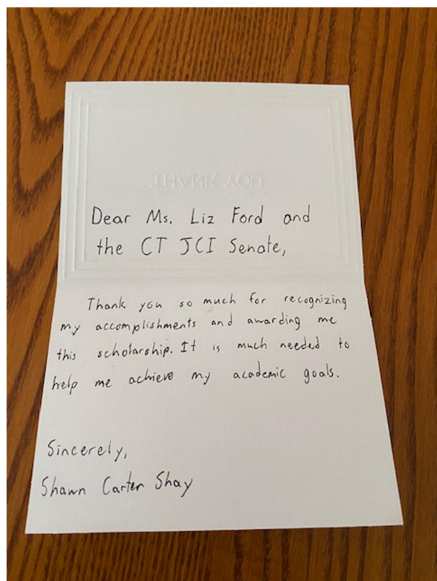 THANK YOU
Dear Ms. Liz Ford and
the CT JCI Senate,
Thank you so much for recognizing
my accomplishments and awarding me
this scholarship. It is much needed to
help me achieve my academic goals.
Sincerely,
Shawn Carter Shay